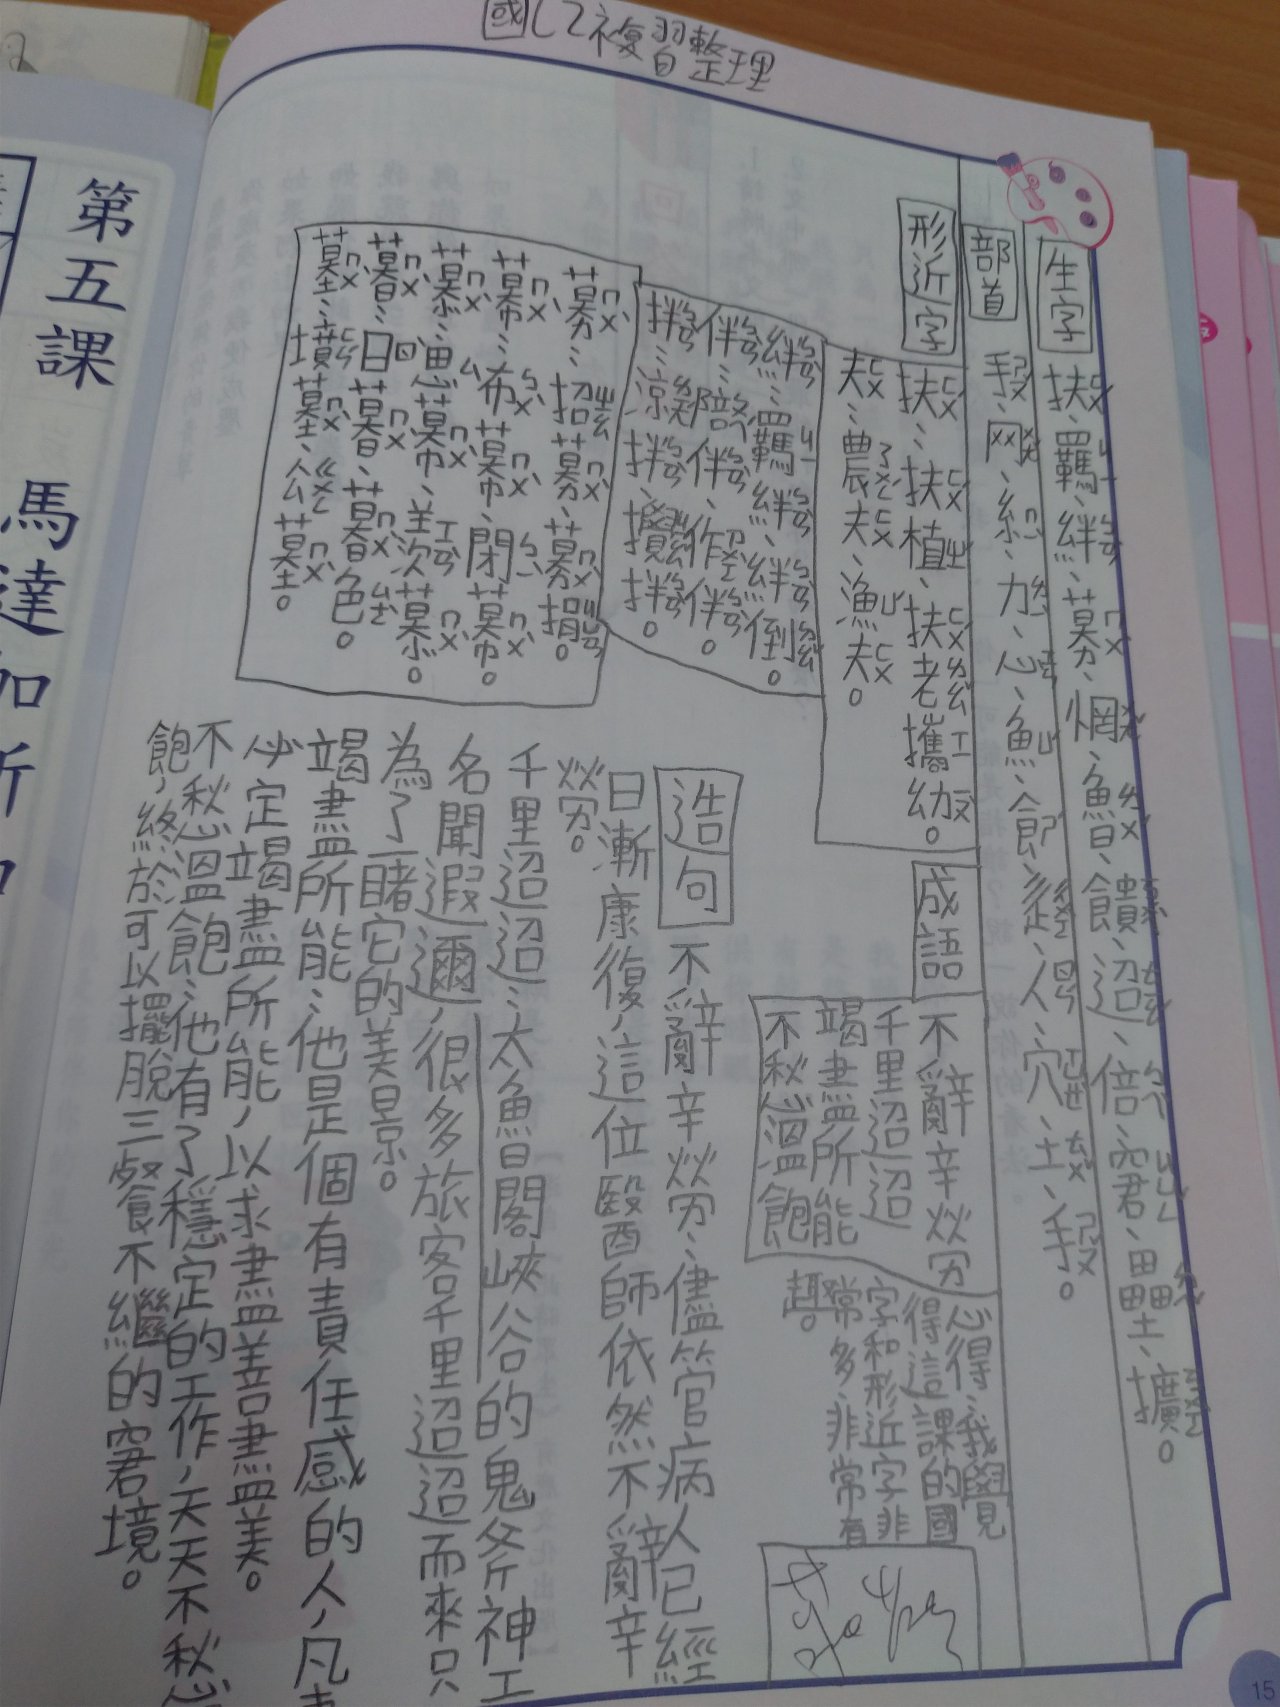 國乙複習整理
生字 扶、羈、絆、募、惘、魯、饋、迢、倍、窘、壘、擴。
部首 手、网、糸、力、心、魚、食、辵、人、穴、土、手。
形近字
扶：扶植、扶老攜幼。
夫：農夫、漁夫。
絆：羈絆、絆倒。
伴：陪伴、作伴。
拌：涼拌、攪拌。
募：招募、募捐。
幕：布幕、閉幕。
慕：思慕、羨慕。
暮：日暮、暮色。
墓：墳墓、公墓。
成語
不辭辛勞
千里迢迢
竭盡所能
不愁溫飽
心得：我覺
得這課的國
字和形近字非
常多，非常有
趣。
造句 不辭辛勞：儘管病人已經
日漸康復，這位醫師依然不辭辛
勞。
千里迢迢：太魯閣峽谷的鬼斧神工
名聞遐邇，很多旅客千里迢迢而來只
為了一睹它的美景。
竭盡所能：他是個有責任感的人，凡事
必定竭盡所能，以求盡善盡美。
不愁溫飽：他有了穩定的工作，天天不愁溫
飽，終於可以擺脫三餐不繼的窘境。
第五課 馬達加斯加
15